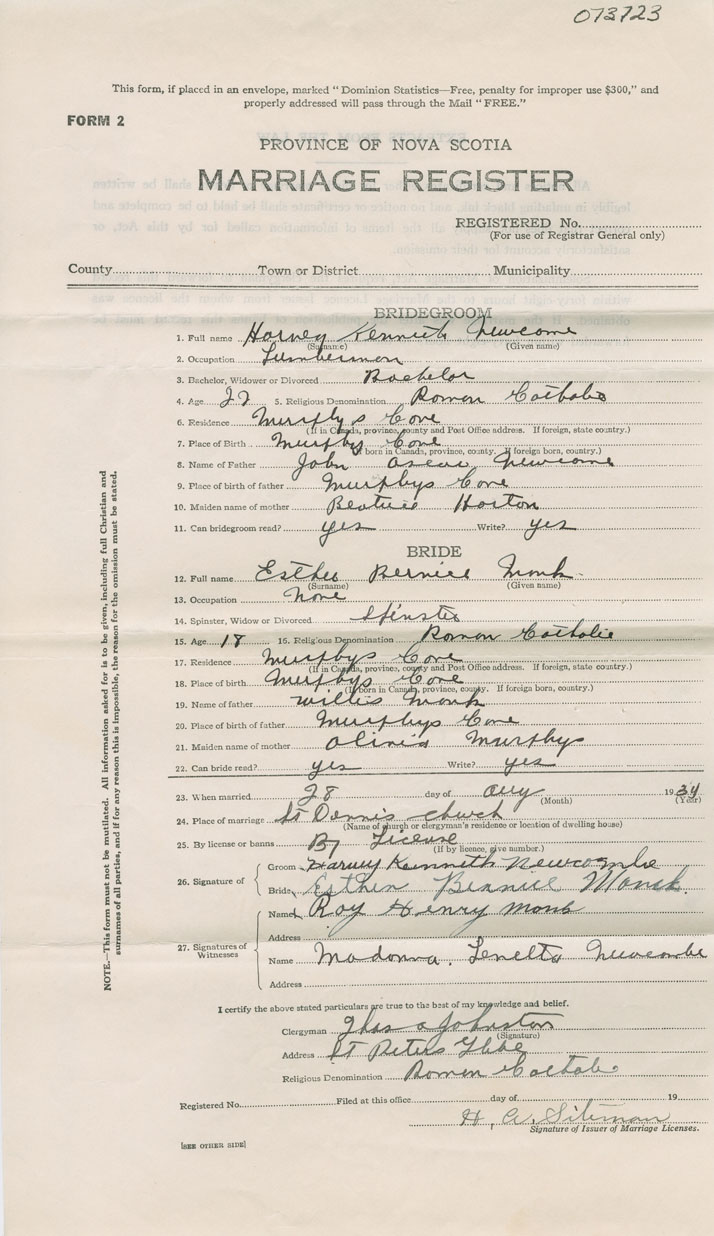 073723
This form, if placed in an envelope, marked "Dominion Statistics—Free, penalty for improper use $300," and
properly addressed will pass through the Mail "FREE."
FORM 2
PROVINCE OF NOVA SCOTIA
MARRIAGE REGISTER
REGISTERED No.
(For use of Registrar General only)
County Town or District Municipality
BRIDEGROOM
1. Full name Harvey Kenneth Newcome
(Surname) (Given name)
2. Occupation Lumberman
3. Bachelor, Widower or Divorced Bachelor
4. Age 27 5. Religious Denomination Roman Catholic
6. Residence Murphys Cove
(If in Canada, province, county and Post Office address. If foreign, state country.)
7. Place of Birth Murphys Cove
(If born in Canada, province, county. If foreign born, country.)
8. Name of Father John Oscar Newcome
9. Place of birth of father Murphys Cove
10. Maiden name of mother Beatrice Horton
11. Can bridegroom read? yes Write? yes
BRIDE
12. Full name Esther Bernice Monk
(Surname) (Given name)
13. Occupation None
14. Spinster, Widow or Divorced Spinster
15. Age 18 16. Religious Denomination Roman Catholic
17. Residence Murphys Cove
(If in Canada, province, county and Post Office address. If foreign, state country.)
18. Place of birth Murphys Cove
(If born in Canada, province, county. If foreign born, country.)
19. Name of father Willis Monk
20. Place of birth of father Murphys Cove
21. Maiden name of mother Murphy
22. Can bride read? yes Write? yes
23. When married 28 day of Aug 1934
(Month) (Year)
24. Place of marriage St Dennis church
(Name of church or clergyman's residence or location of dwelling house)
25. By license or banns By License
(If by licence, give number.)
26. Signature of Groom Harvey Kenneth Newcombe
Bride Esther Bernice Monk
27. Signatures of Witnesses
Name Roy Henry Monk
Address
Name Madonna Newcombe
Address
I certify the above stated particulars are true to the best of my knowledge and belief.
Clergyman Chas a Johnston
(Signature)
Address St Peters
Religious Denomination Roman Catholic
Registered No. Filed at this office day of 19
H. Siteman
Signature of Issuer of Marriage Licenses.
[SEE OTHER SIDE]
NOTE.—This form must not be mutilated. All information asked for is to be given, including full Christian and
surnames of all parties, and if for any reason this is impossible, the reason for the omission must be stated.